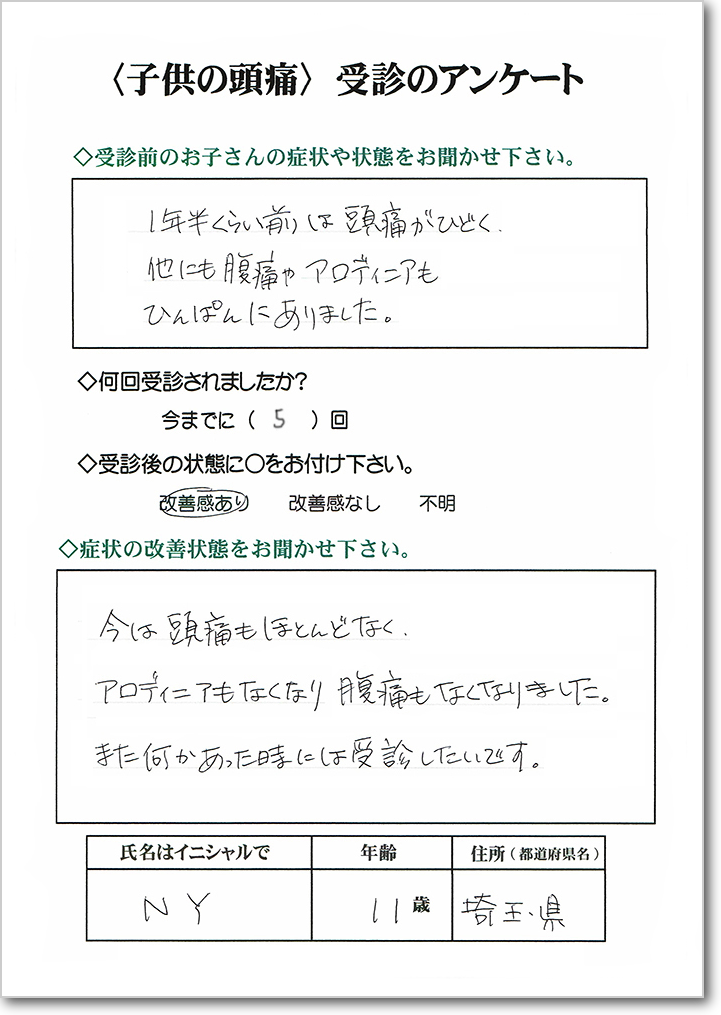 〈子供の頭痛〉 受診のアンケート
◇受診前のお子さんの症状や状態をお聞かせ下さい。
1年半くらい前は頭痛がひどく、
他にも腹痛やアロディニアも
ひんぱんにありました。
◇何回受診されましたか?
今までに ( 5 ) 回
◇受診後の状態に○をお付け下さい。
改善感あり 改善感なし 不明
◇症状の改善状態をお聞かせ下さい。
今は頭痛もほとんどなく、
アロディニアもなくなり腹痛もなくなりました。
また何かあった時には受診したいです。
氏名はイニシャルで 年齢 住所(都道府県名)
NY 11歳 埼玉県